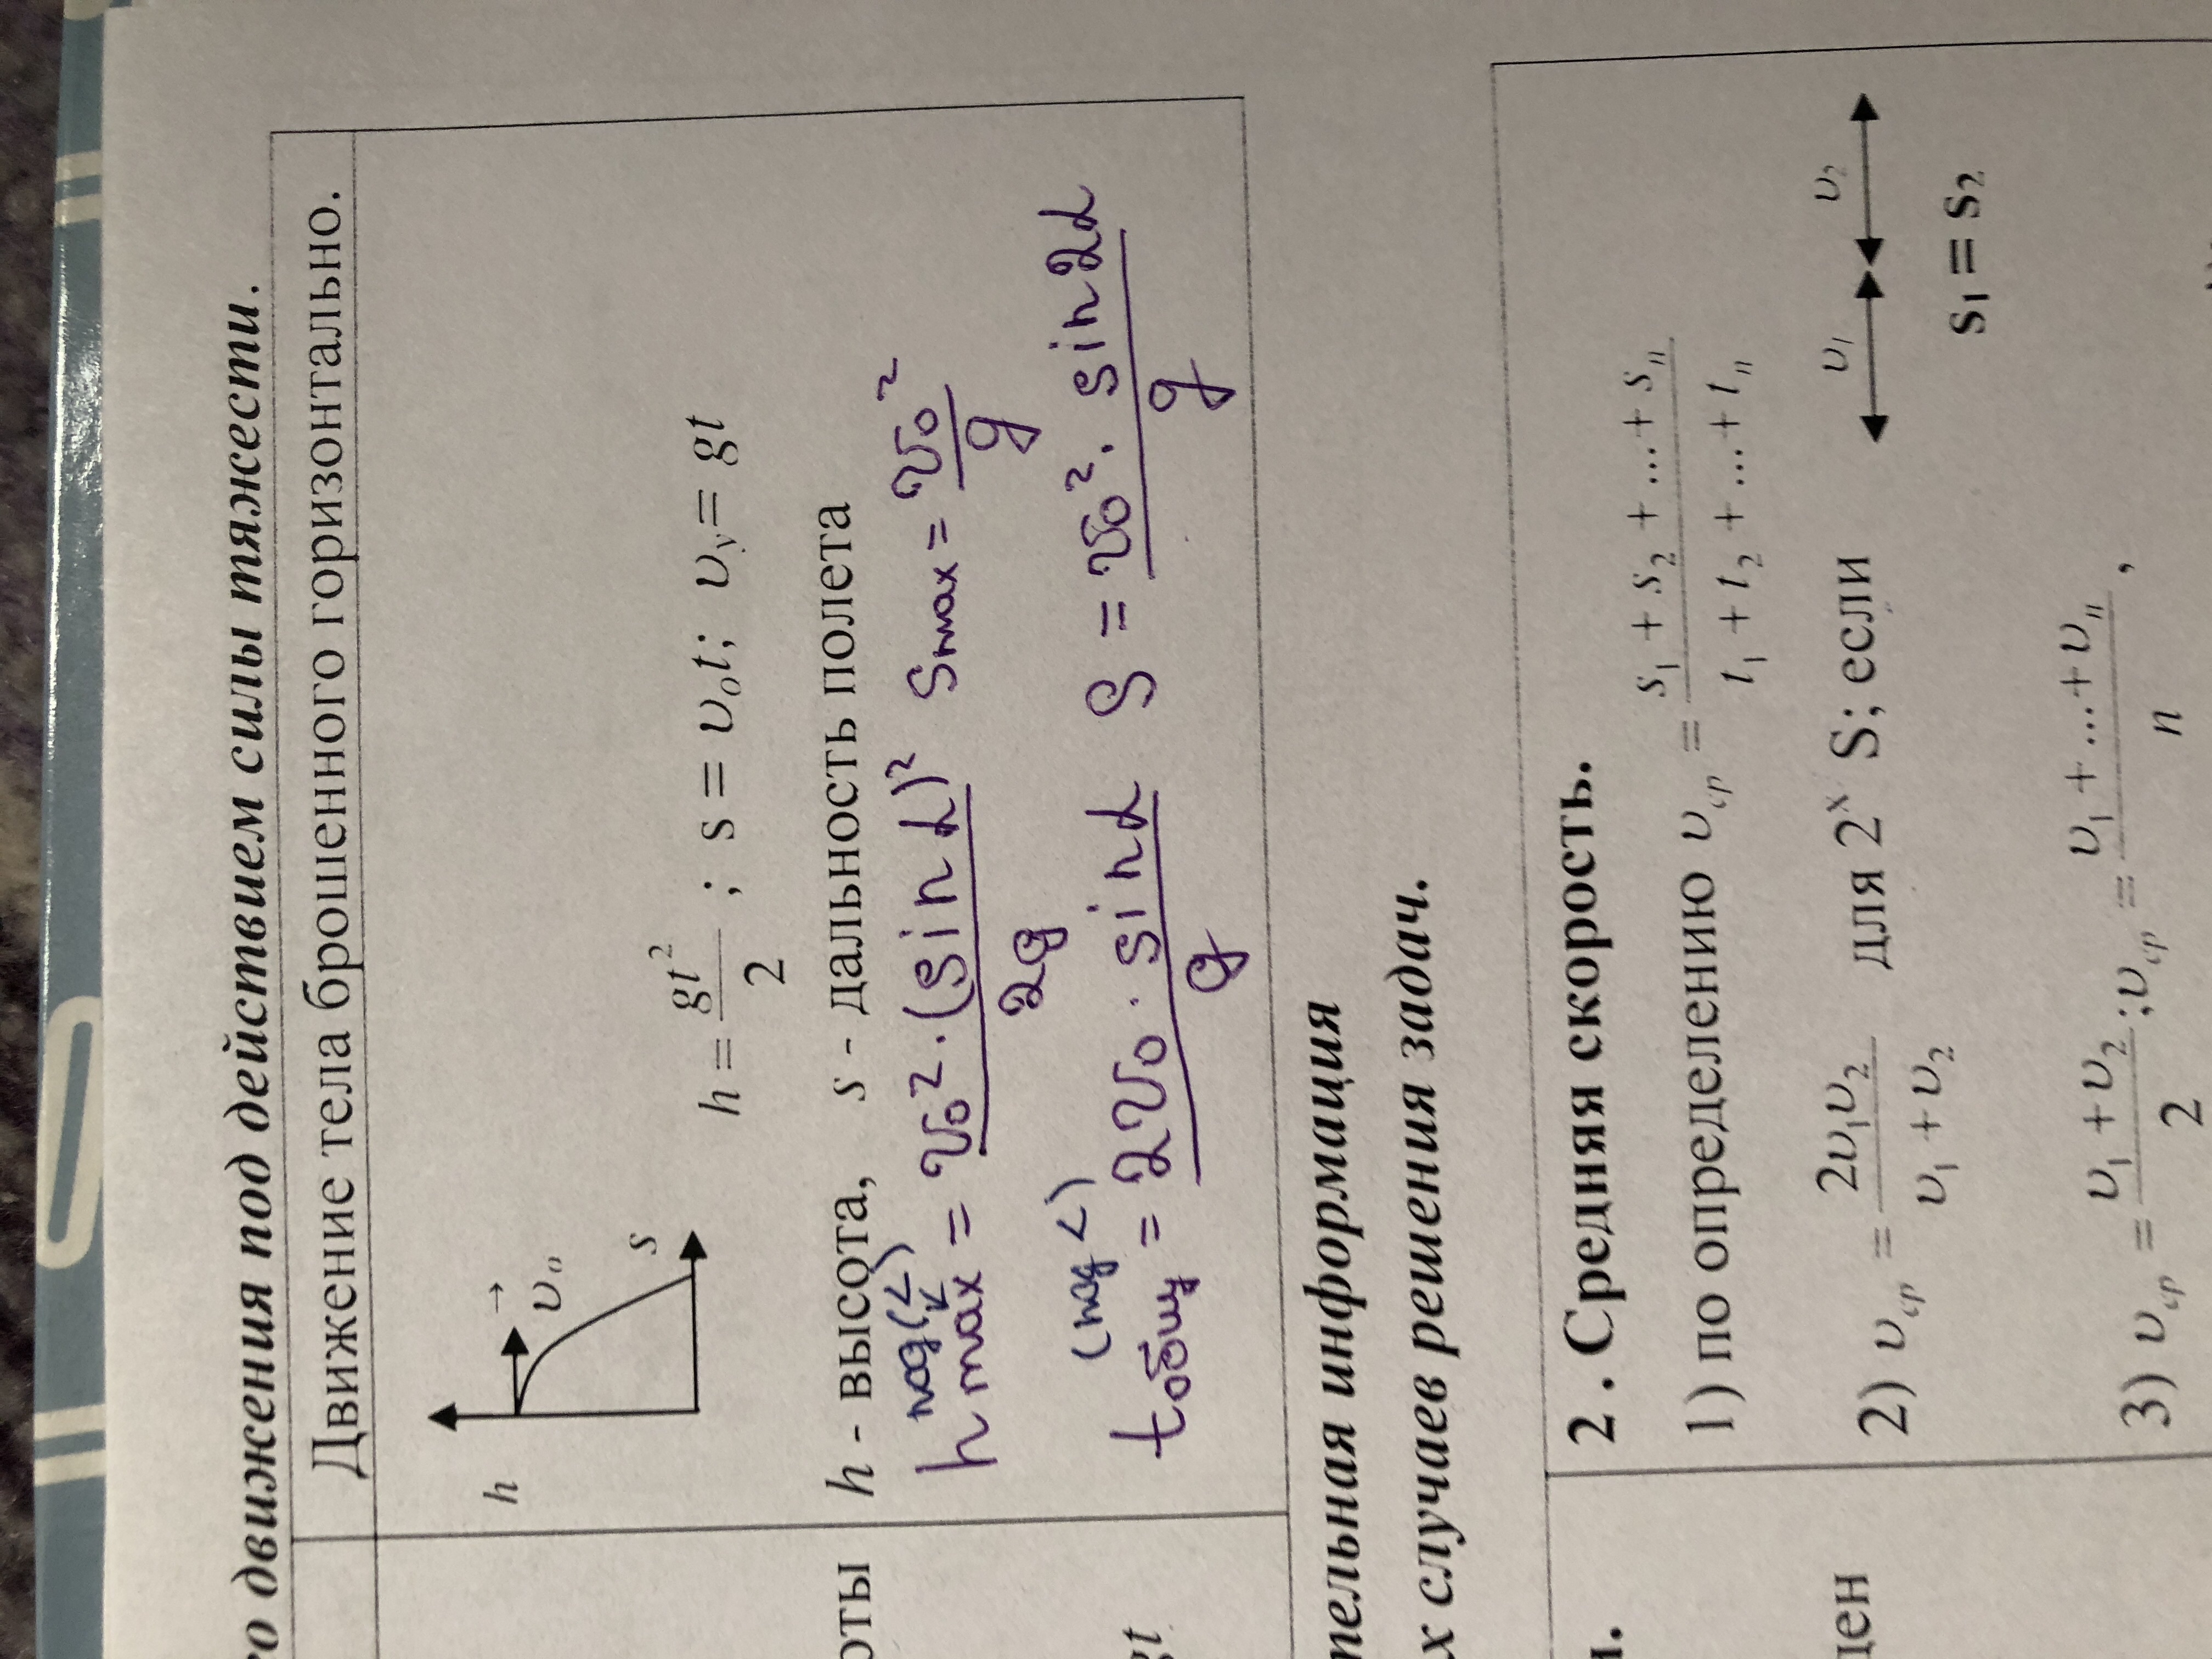 го движения под действием силы тяжести.
Движение тела брошенного горизонтально.
h
υ₀
s
h = gt²/2 ; s = υ₀t; υᵧ = gt
оты
h - высота, s - дальность полета
под(∠)
hmax = v₀² · (sin α)² / 2g Smax = v₀² / g
(под ∠)
tобщ = 2v₀ · sin α / g S = v₀² · sin 2α / g
gt
тельная информация
х случаев решения задач.
2 . Средняя скорость.
1) по определению υср = s₁ + s₂ + ... + sₙ / t₁ + t₂ + ... + tₙ
2) υср = 2υ₁υ₂ / υ₁ + υ₂ для 2ˣ S; если
υ₁ υ₂
s₁ = s₂
3) υср = υ₁ + υ₂ / 2 ; υср = υ₁ + ... + υₙ / n ,